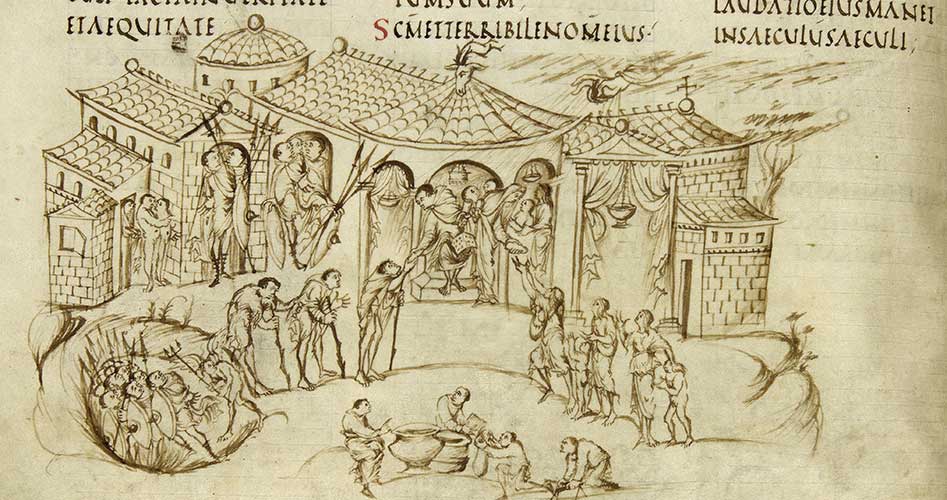 FACTAINUERITATE
ETAEQUITATE
TUMSUUM
SCMETTERRIBILENOMEIUS·
LAUDATIOEIUSMANET
INSAECULUSAECULI;